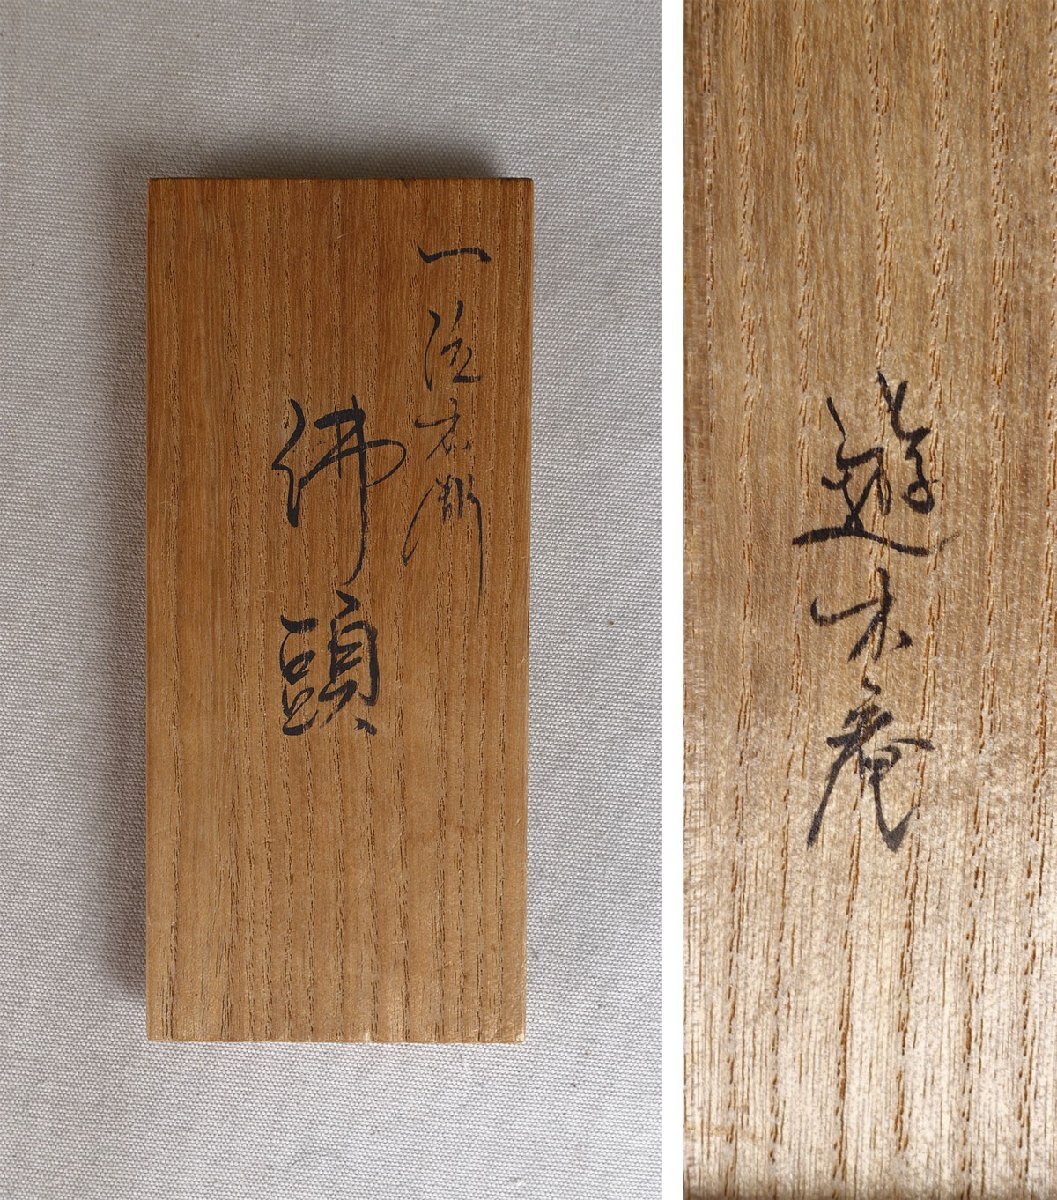 一位木彫
佛頭
遊木庵